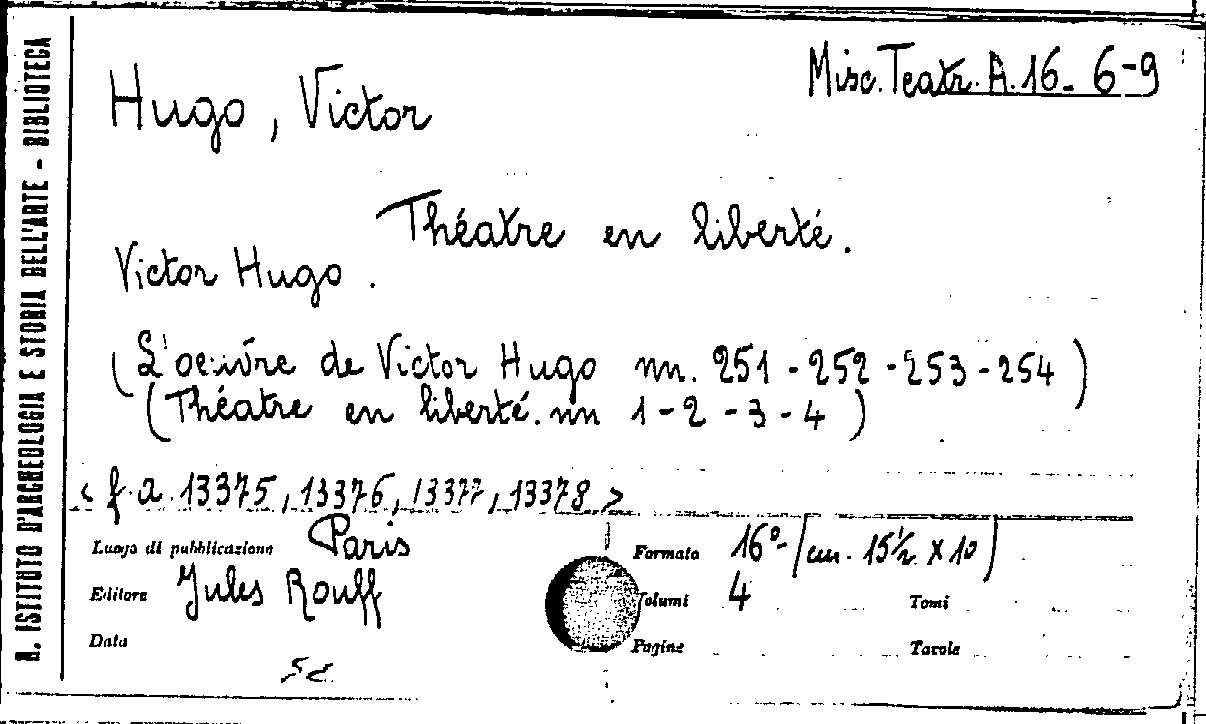 R. ISTITUTO D'ARCHEOLOGIA E STORIA DELL'ARTE - BIBLIOTECA
Misc. Teatr. A. 16. 6-9
Hugo, Victor
Théatre en liberté.
Victor Hugo.
(L'oeuvre de Victor Hugo nn. 251 - 252 - 253 - 254)
(Théatre en liberté. nn 1 - 2 - 3 - 4)
< f. a. 13375, 13376, 13377, 13378 >
Luogo di pubblicazione Paris
Formato 16° (cm. 15½ x 10)
Editore Jules Rouff
Volumi 4 Tomi
Data sd
Pagine Tavole